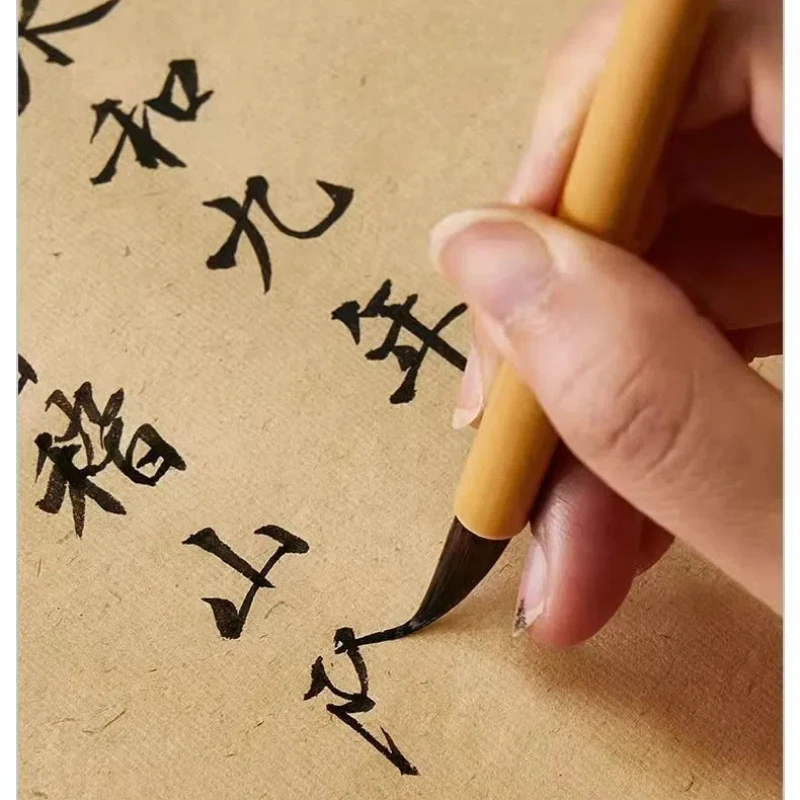 和九年
稽山